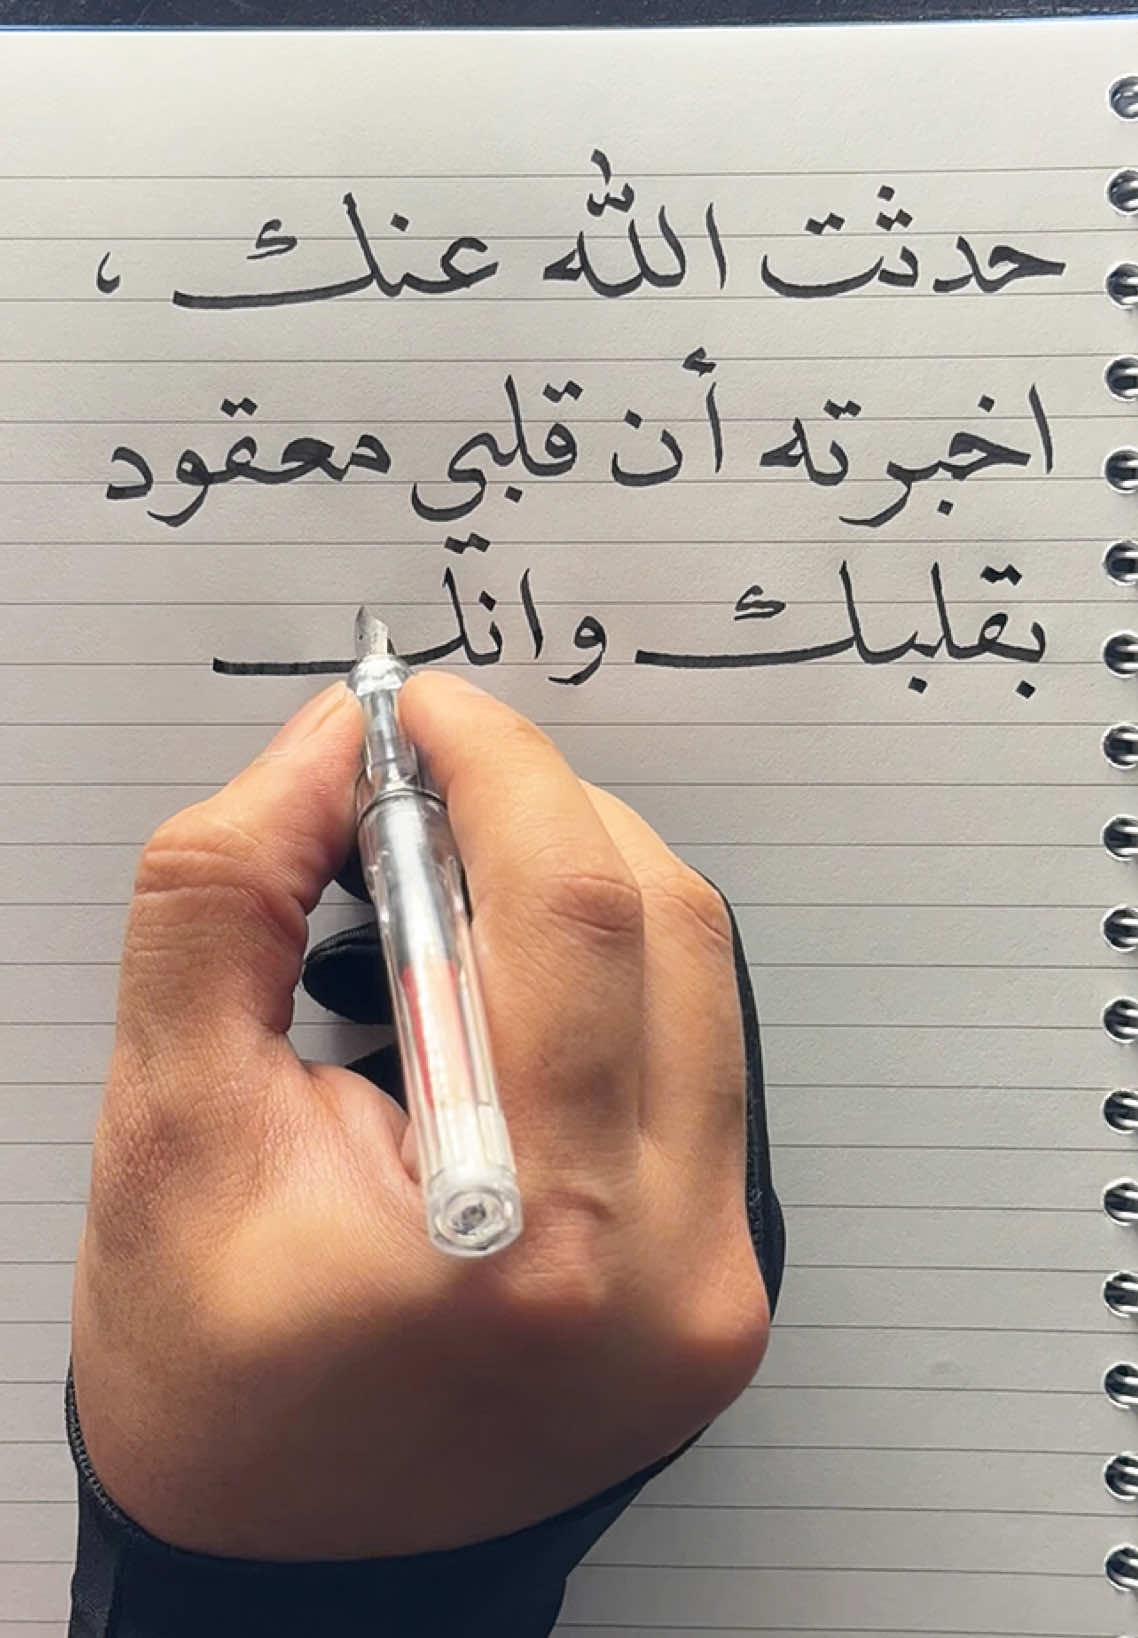 حدثت الله عنك ،
اخبرته أن قلبي معقود
بقلبك وانك